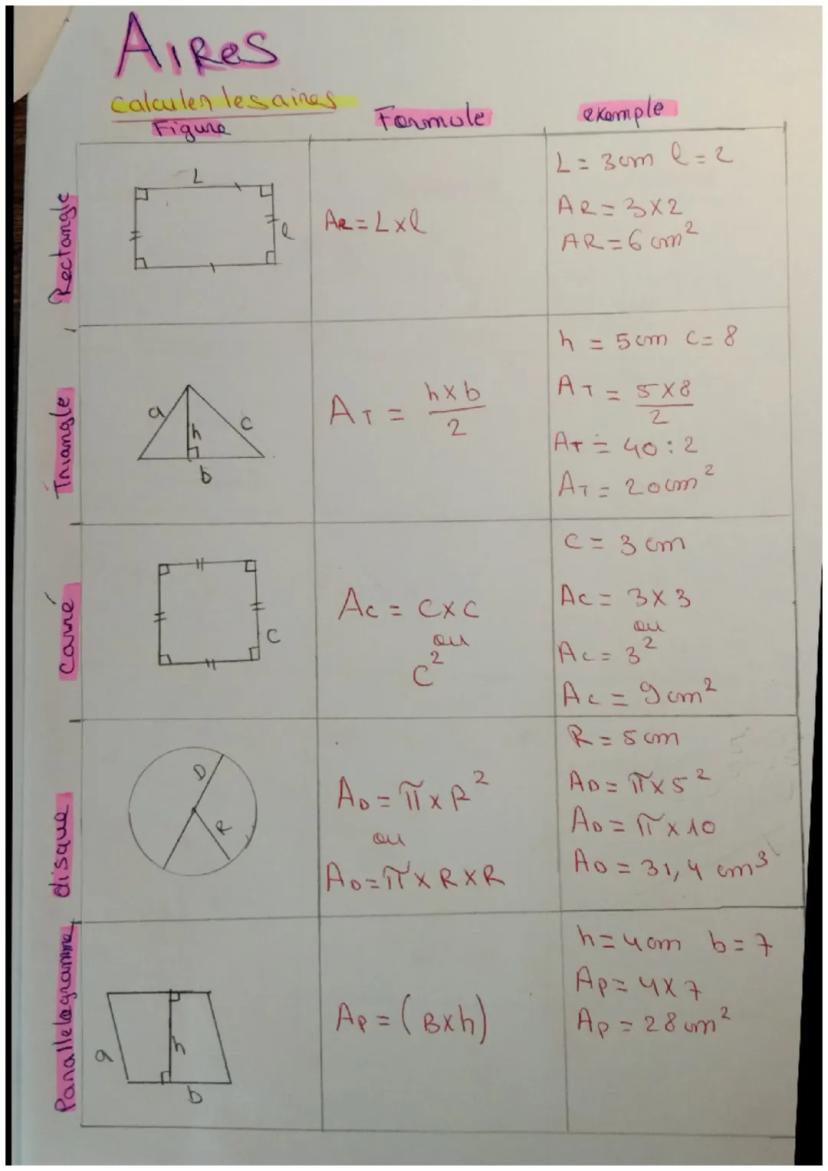 AIRes
calculer les aires
Figure Formule exemple
Rectangle
L
l
AR = L x l
L = 3cm l = 2
AR = 3 x 2
AR = 6 cm²
Triangle
a
h
c
b
AT = h x b / 2
h = 5cm c = 8
AT = 5 x 8 / 2
AT = 40 : 2
AT = 20cm²
Carré
C
Ac = C x C
ou
C²
C = 3 cm
Ac = 3 x 3
ou
Ac = 3²
Ac = 9cm²
disque
D
R
AD = π x R²
ou
AD = π x R x R
R = 5cm
AD = π x 5²
AD = π x 10
AD = 31,4 cm³
Parallelogramme
a
h
b
AP = (B x h)
h = 4cm b = 7
AP = 4 x 7
AP = 28cm²